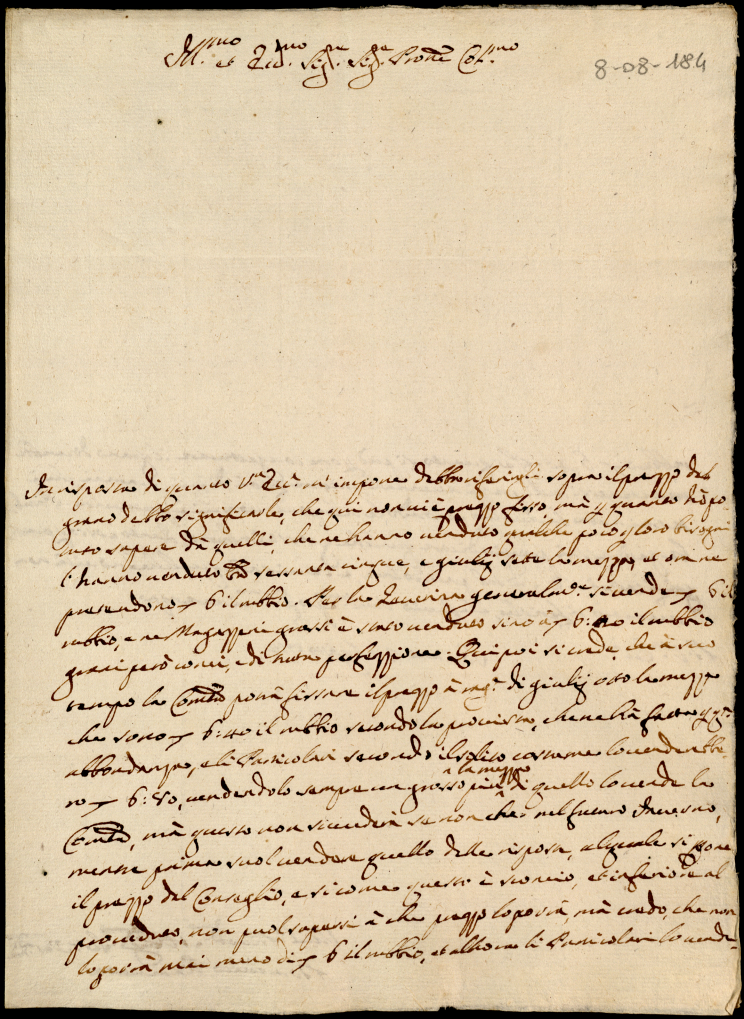 Ill.mo et Ecc.mo Sig.re Sig.re Prone Col.mo
8-08-184
In risposta di quanto V. Ecc. m'impone debba riferirgli sopra il prezzo del
grano debbo significarle, che qui non vi è prezzo fisso, mà p quanto hò po
tuto sapere dà quelli, che ne hanno venduto qualche poco p loro bisogni
l'hanno venduto sessanta cinque, e giulij sette la mezza, et ora ne
pretendono 6 il rubbio. Per la generalm.e si vende 6 il
rubbio, e ne Magazzeni grossi è stato venduto sino à 6: il rubbio
grani però conci, e di tutta perfezzione. Qui poi si crede, che à suo
tempo la Com.tà potrà fissare il prezzo à di giulij otto la mezza
che sono 6:40 il rubbio secondo la provista, che ne hà fatto p
abbondanza, e li Particolari secondo il solito costume lo venderebbe
ro 6:80, vendendolo sempre un grosso più la mezza di quello lo vende la
Com.tà, mà questo non succederà se non che nel futuro Inverno,
mentre prima suol vendere quello delle risposte, al quale si pone
il prezzo dal Conseglio, e si come questo è sconcio, et inferiore al
proceduto, non puol sapersi à che prezzo lo porrà, mà credo, che non
lo porrà mai meno di 6 il rubbio, et allhora li Particolari lo vende-